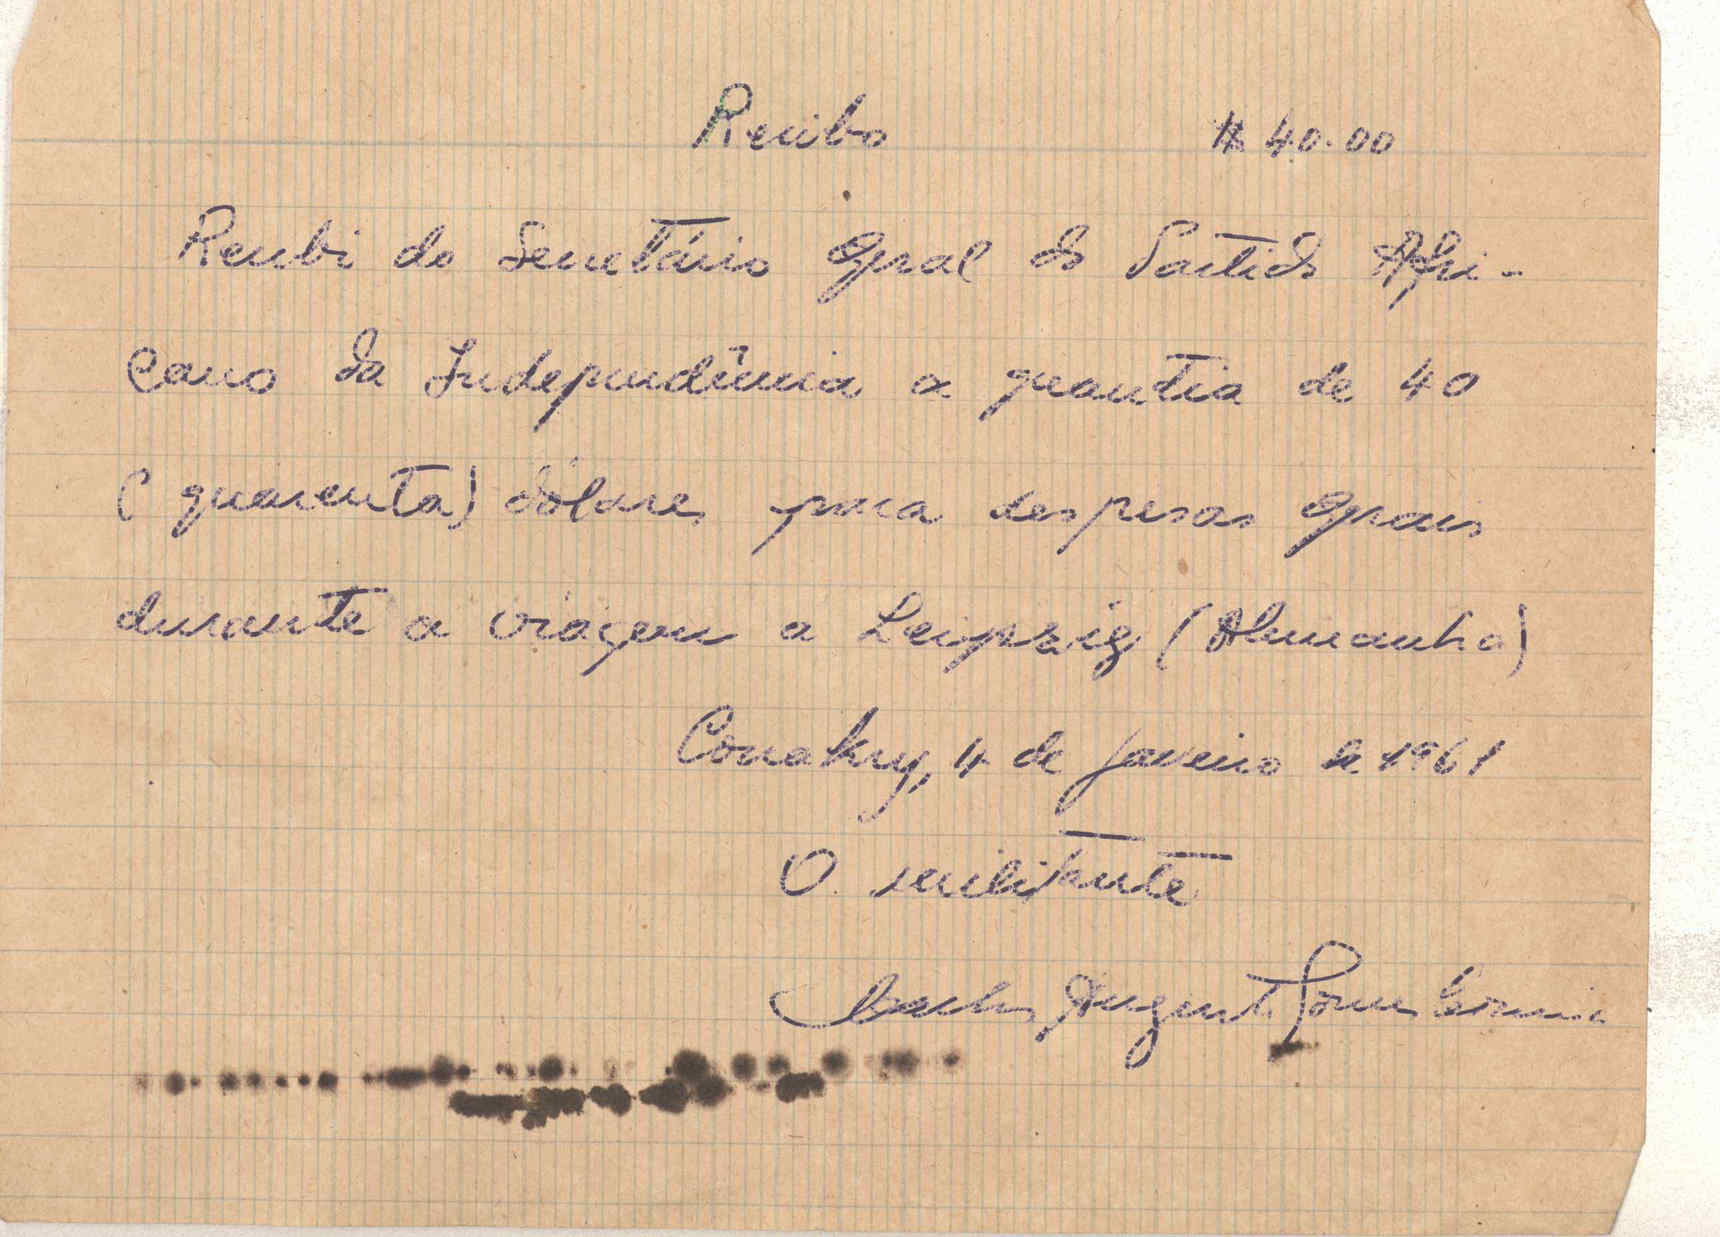 Recibo $ 40.00
Recebi do Secretário Geral do Partido Afri-
cano da Independência a quantia de 40
(quarenta) dólares para despesas gerais
durante a viagem a Leipzig (Alemanha)
Conakry, 4 de Janeiro de 1961
O militante
Augusto